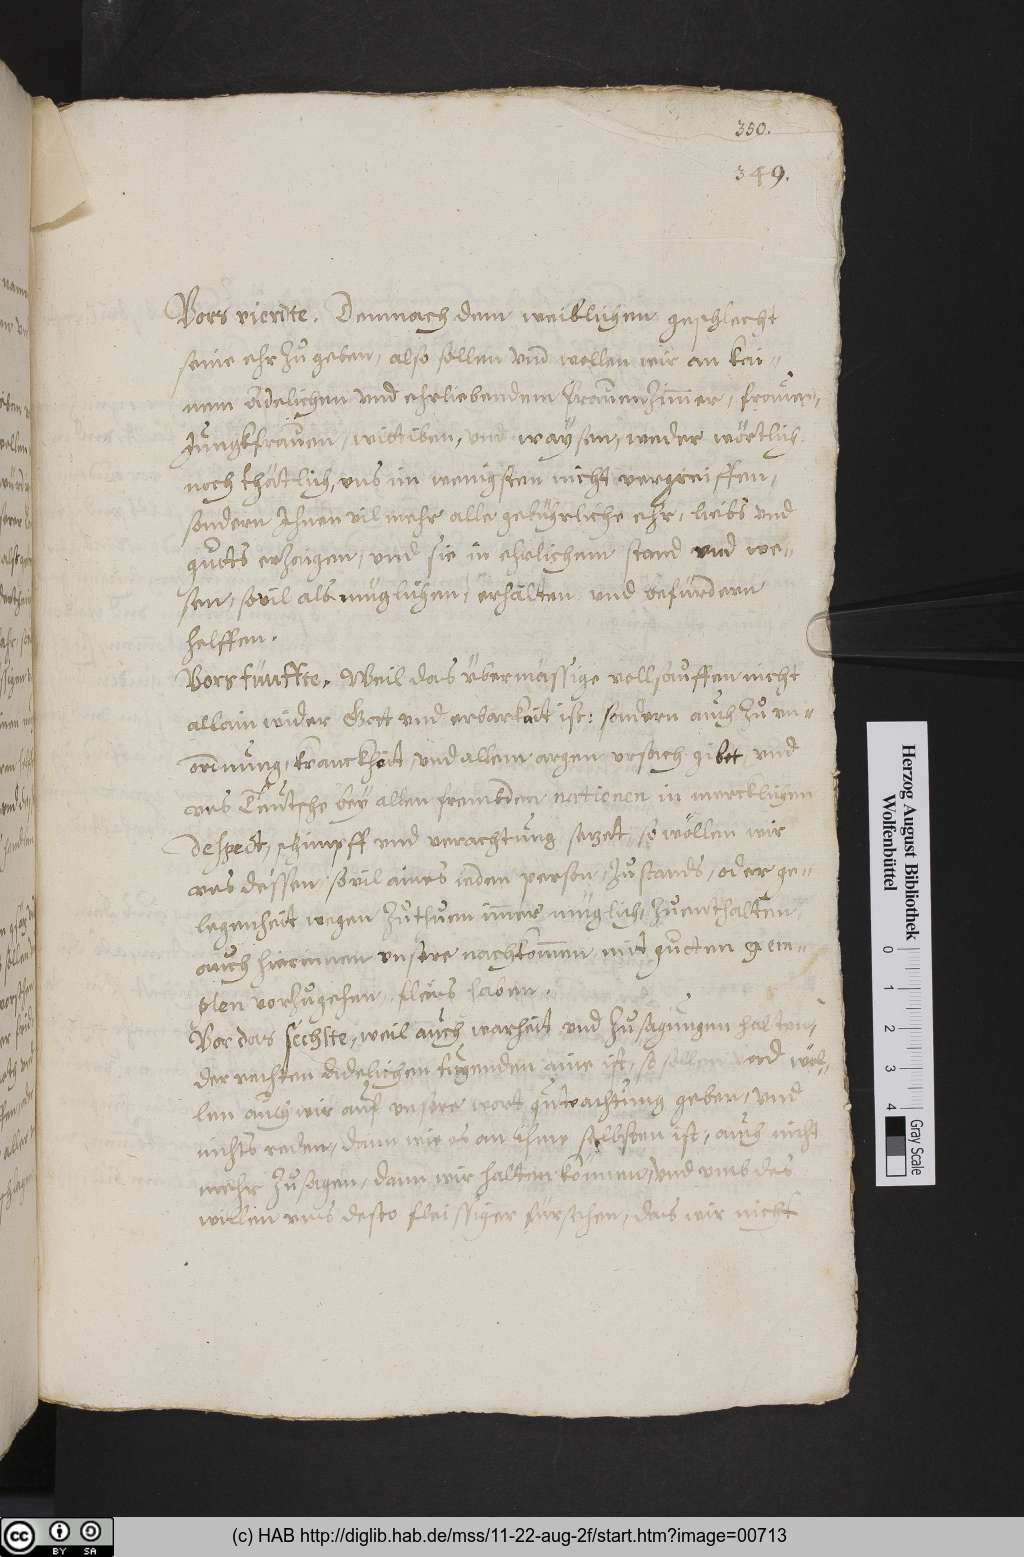 350.
349.
Vors vierdte. Demnach dem weiblichen geschlecht
seine ehr zů geben, also sollen vnd wollen wir an kai-
nem Adelichen vnd ehrliebendem Frauenzimmer, frauen,
Jungkfrauen, wittiben, vnd waÿsen, weder wörtlich
noch thätlich, vns im wenigsten nicht vergreiffen,
sondern Ihnen vilmehr alle gebührliche ehr, liebs vnd
guets erzaigen, vnd sie in ehrlichem stand vnd we-
sen, sovil als müglichen, erhalten vnd befürdern
helffen.
Vors fünffte. Weil das übermässige vollsauffen nicht
allain wider Gott vnd erbarkeit ist: sondern auch zů vn-
ordnung, kranckheit, vnd allem argen vrsach gibet, vnd
vns Teütsche beÿ allen frembden nationen in mercklichen
despect, schimpff vnd verachtung setzet, so wöllen wir
vns dessen, sovil aines ieden person, zůstands, oder ge-
legenheit wegen zůthuen immer müglich, zůenthalten,
auch hierinnen vnsere nachkommen mit gutten Exem-
plen vorzůgehen, fleis haben.
Vor das sechste, weil auch warheit vnd zůsagungen halten,
der rechten Adelichen tugenden aine ist, so sollen vnd wöl-
len auch wir auf vnsere wort gut achtung geben, vnd
nichts reden, dann wie es an ihme selbsten ist, auch nicht
mehr zůsagen, dann wir halten können, vnd vmb des
willen vns desto fleissiger fürsehen, das wir nicht
Herzog August Bibliothek
Wolfenbüttel
0
1
2
3
4
Gray Scale
cc
BY
SA
(c) HAB http://diglib.hab.de/mss/11-22-aug-2f/start.htm?image=00713